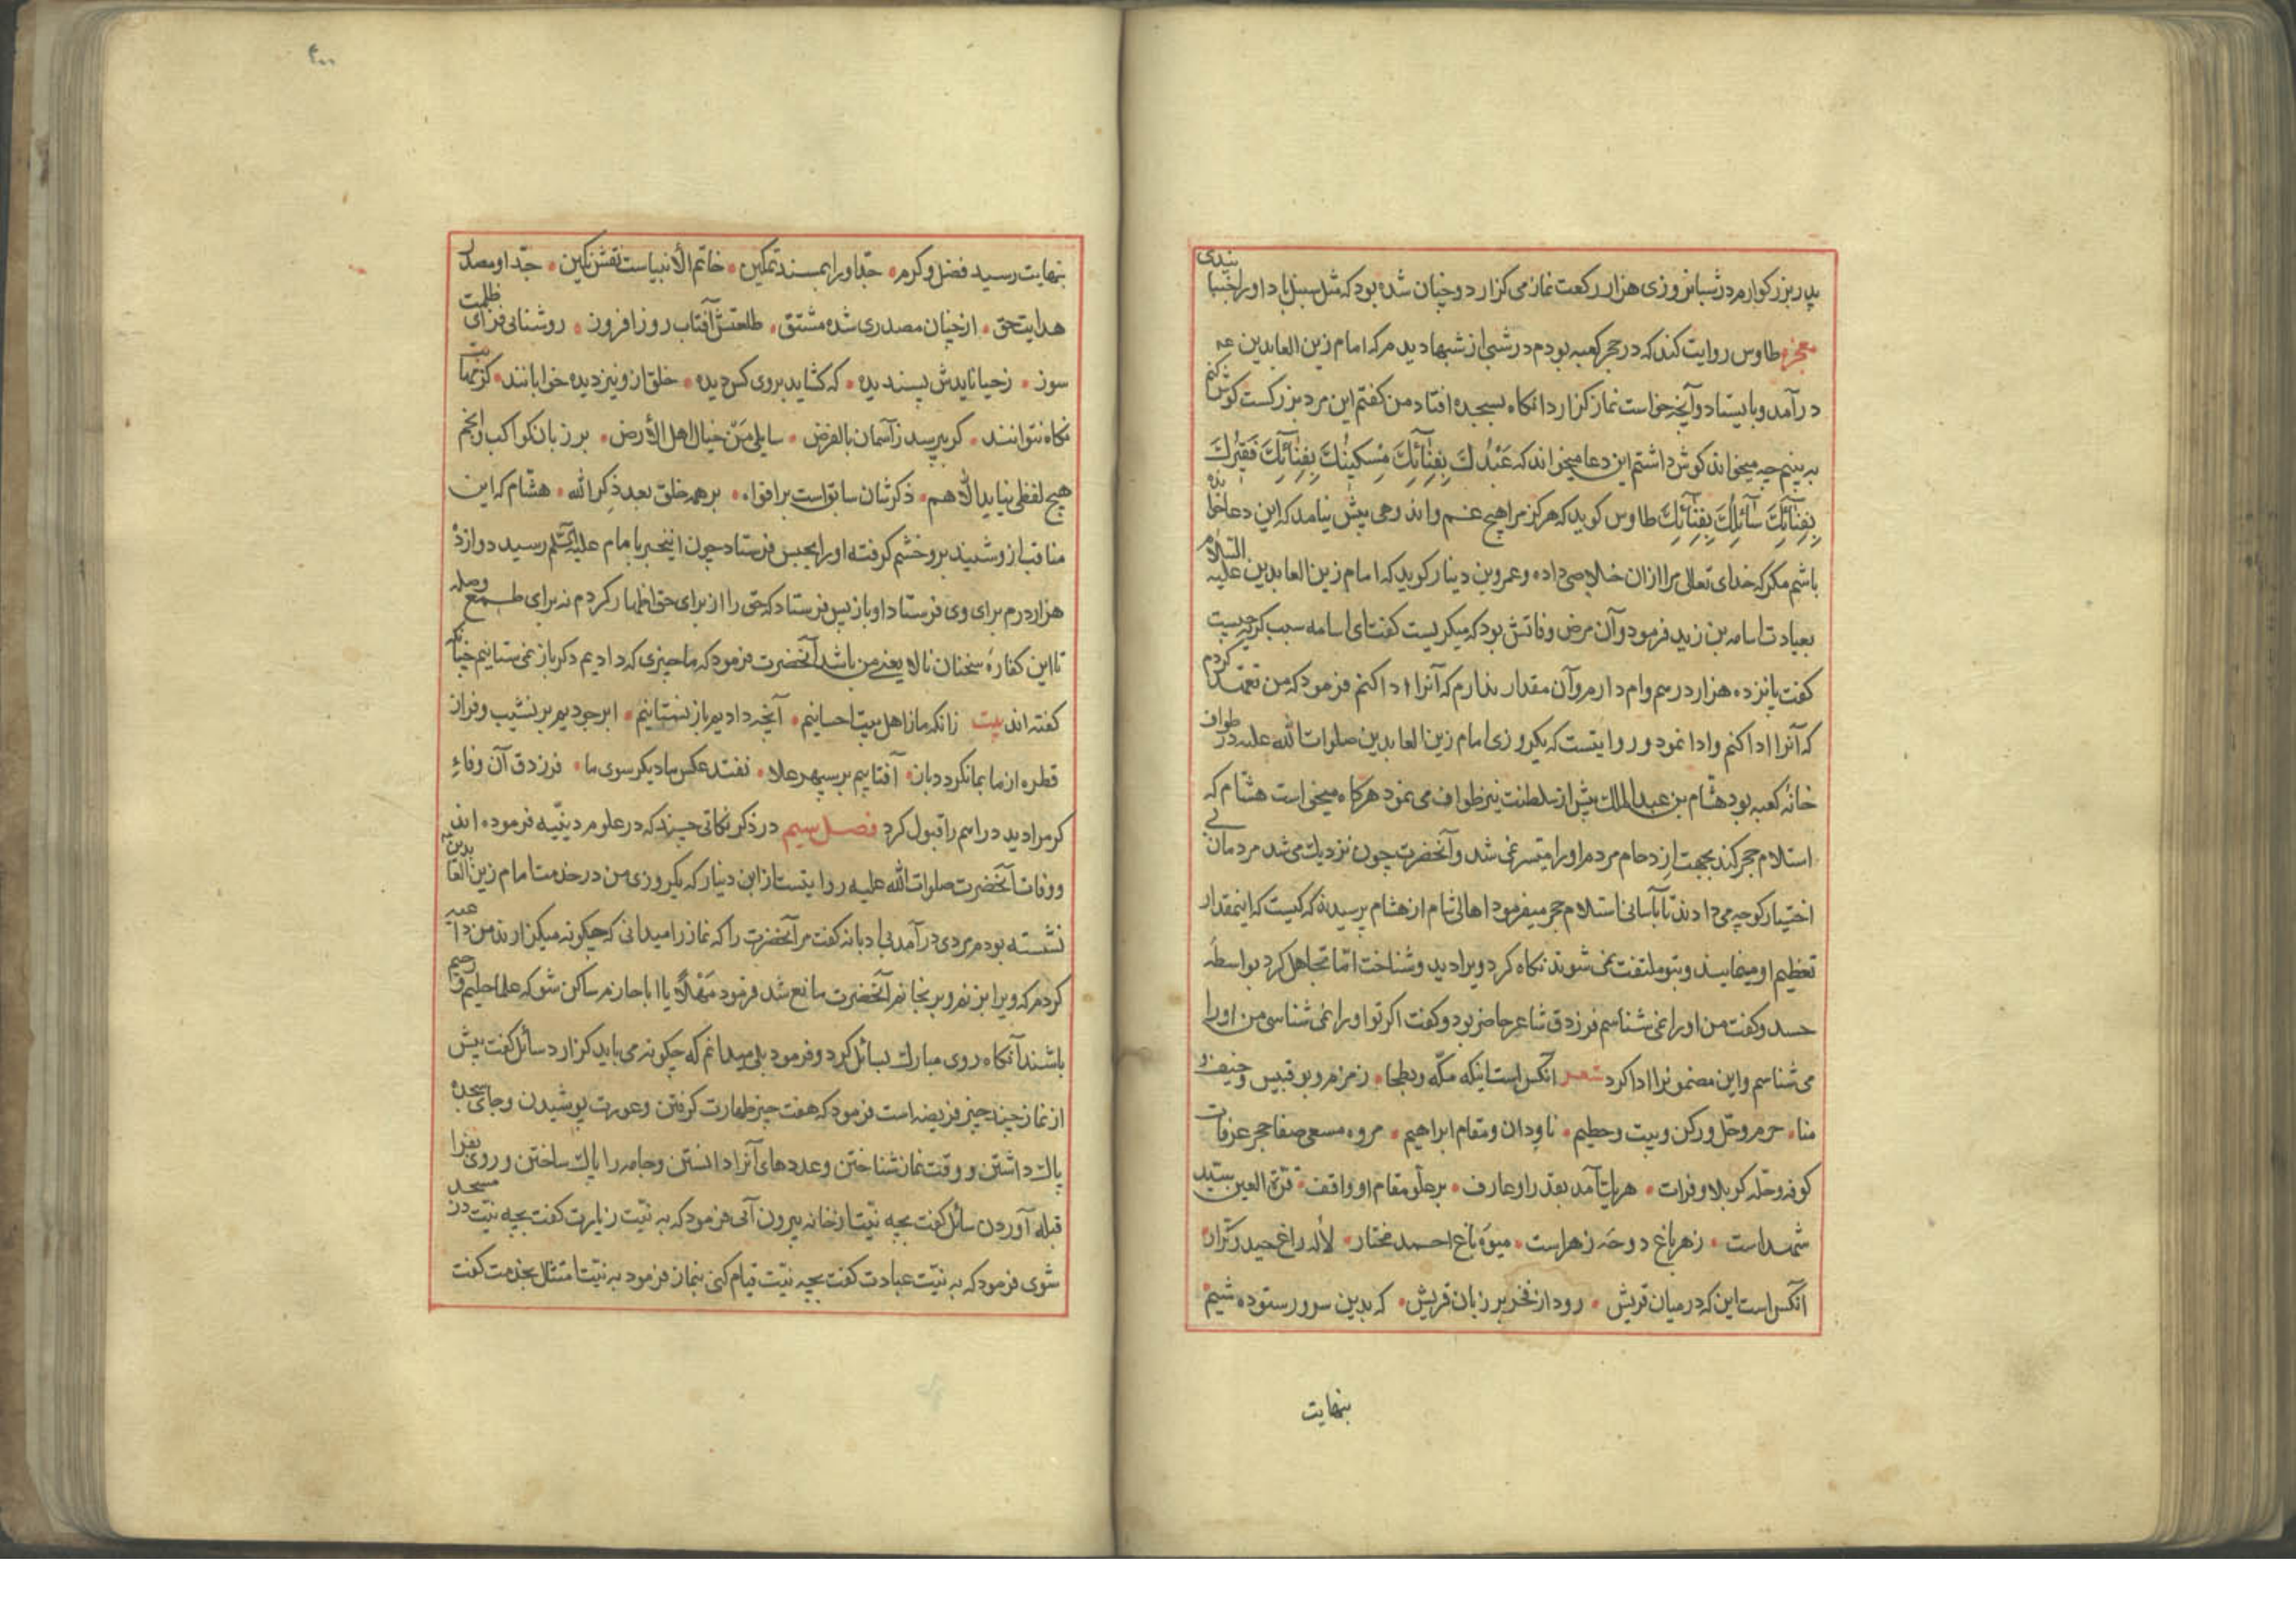 پدر بزرکوارم در شبانروزی هزار رکعت نماز می کزارد و چنان شده بود که مثل سنبل باد او را جنبانیدی
معجزه طاوس روایت کند که در حجر کعبه بودم در شبی از شبها دیدم که امام زین العابدین عه
درآمد و بایستاد و آنچه خواست نماز کزارد انکاه بسجده افتاد من کفتم این مرد بزرکست کوش کنم
به بینم چه میخواند کوش داشتم این دعا میخواند که عَبْدُكَ بِفِنَائِكَ مِسْكِينُكَ بِفِنَائِكَ فَقِيرُكَ
بِفِنَائِكَ سَائِلُكَ بِفِنَائِكَ طاوس کوید که هرکز مرا هیچ غم و اندوهی پیش نیامد که این دعا خوانده
باشم مکر که خدای تعالی مرا ازان خلاصی داده و عمرو بن دینار کوید که امام زین العابدین علیه السلام
بعیادت اسامه بن زید فرمود و آن مرض وفاتش بود که میکریست کفت ای اسامه سبب کریه چیست
کفت پانزده هزار درم وام دارم و آن مقدار ندارم که آنرا ادا کنم فرمود که من تعهد کردم
که آنرا ادا کنم و ادا نمود و روایتست که یکروزی امام زین العابدین صلوات الله علیه در طواف
خانهٔ کعبه بود هشام بن عبد الملك پیش از سلطنت نیز طواف می نمود هرکاه میخواست هشام که
استلام حجر کند بجهت ازدحام مردم او را میتسر نمی شد و آنحضرت چون نزدیك می شد مردمان بی
اختیار کوچه می دادند تا بآسانی استلام حجر میفرمود اهالی شام از هشام پرسیدند که کیست که اینمقدار
تعظیم او مینمایند و بتو ملتفت نمی شوند نکاه کرد ویرا دید و شناخت امّا تجاهل کرد بواسطهٔ
حسد و کفت من او را نمی شناسم فرزدق شاعر حاضر بود و کفت اکر تو او را نمی شناسی من او را
می شناسم و این مضمونرا ادا کرد شعر آنکس است اینکه مکّه و بطحا زمزم و بوقبیس و خیف و
منا حرم و حلّ و رکن و بیت و حطیم ناودان و مقام ابراهیم مروه مسعی صفا حجر عرفات
کوفه و حلّه کربلا و فرات هریك آمد بقدر او عارف بر علو مقام او واقف قرّة العین سیّد
شهداست زهر باغ دوحهٔ زهراست میوهٔ باغ احمد مختار لالهٔ راغ حیدر کرّار
آنکس است این که در میان قریش رود از فخر بر زبان قریش که بدین سرور ستوده شیم
بنهایت
۳۰۰
بنهایت رسید فضل و کرم جدّ او را بمسند تمکین خاتم الأنبیاست نقش نکین جدّ او مصدر
هدایت حق از چنان مصدری شده مشتق طلعتش آفتاب روز افروز روشنائی فزای ظلمت
سوز ز حیا نایدش پسندیده که کشاید بروی کس دیده خلق ازو نیز دیده خوابانند کز مهابت
نکاه نتوانند کر بپرسد ز آسمان بالفرض سایلی مَنْ خیال اهل الأرض بر زبان کواکب و انجم
هیچ لفظی نیاید الّا هم ذکرشان سابق است بر افواه بر همه خلق بعد ذِکر الله هشام که این
مناقب ازو شنید برو خشم کرفته او را بحبس فرستاد چون اینخبر بامام علیه السّلم رسید دوازده
هزار درم برای وی فرستاد او باز پس فرستاد که حق را از برای حق اظهار کردم نه برای طمع و صله
تا این کفارهٔ سخنان نالایعنی من باشد آنحضرت فرمود که ما چیزی که دادیم دکر باز نمی ستانیم چنانکه
کفته اند بیت زانکه ما از اهل بیت احسانیم آنچه دادیم باز نستانیم ابر جودیم بر نشیب و فراز
قطره از ما بما نکردد باز آفتابیم بر سپهر علا نفتد عکس ما دیکر سوی ما فرزدق آن وفاءِ
کرم را دید دراسم را قبول کرد فصل سیم در ذکر نکاتی چند که در علوم دینیّه فرموده اند
و وفات آنحضرت صلوات الله علیه روایتست از ابن دینار که یکروزی من در خدمت امام زین العابدین عه
نشسته بودم مردی درآمد بی ادبانه کفت مر آنحضرت را که نماز را میدانی که چکونه میکزارند من داعیه
کردم که ویرا بزنم و برنجانم آنحضرت مانع شد فرمود مَهْلًا یا ابا حازم ساکن شو که علما حلیم و رحیم
باشند آنکاه روی مبارك بسائل کرد و فرمود بلی میدانم که چکونه می باید کزارد سائل کفت پیش
از نماز چند چیز فریضه است فرمود که هفت چیز طهارت کرفتن و عورت پوشیدن و جای سجده
پاك داشتن و وقت نماز شناختن و عددهای آنرا دانستن و جامه را پاك ساختن و روی بفرا
قبله آوردن سائل کفت بچه نیّت از خانه بیرون آئی فرمود که به نیّت زیارت کفت بچه نیّت در مسجد
شوی فرمود که به نیّت عبادت کفت بچه نیّت قیام کنی بنماز فرمود به نیّت امتثال بخدمت کفت